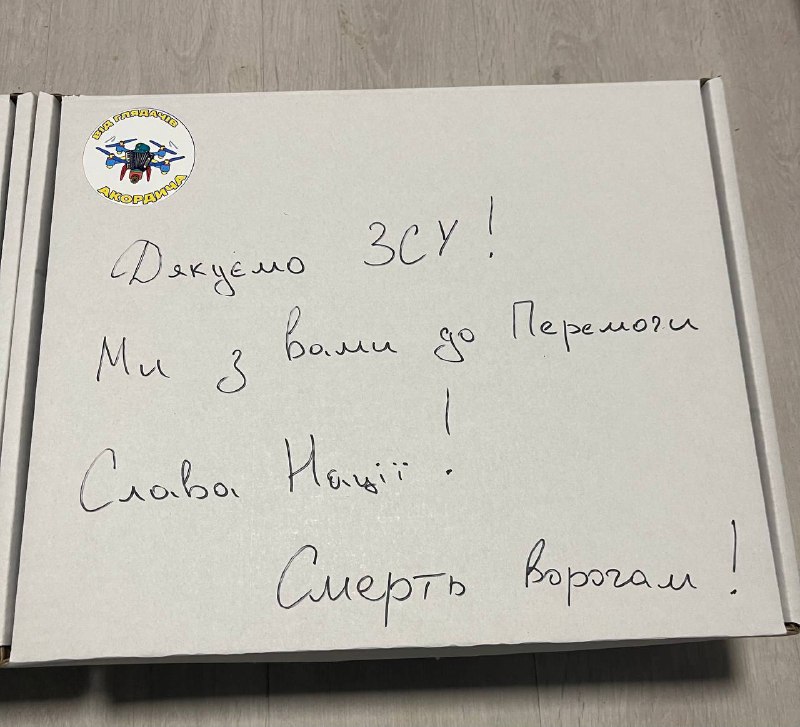 ВІД ГЛЯДАЧІВ
АКОРДИЧА
Дякуємо ЗСУ!
Ми з вами до Перемоги
Слава Нації!
Смерть ворогам!